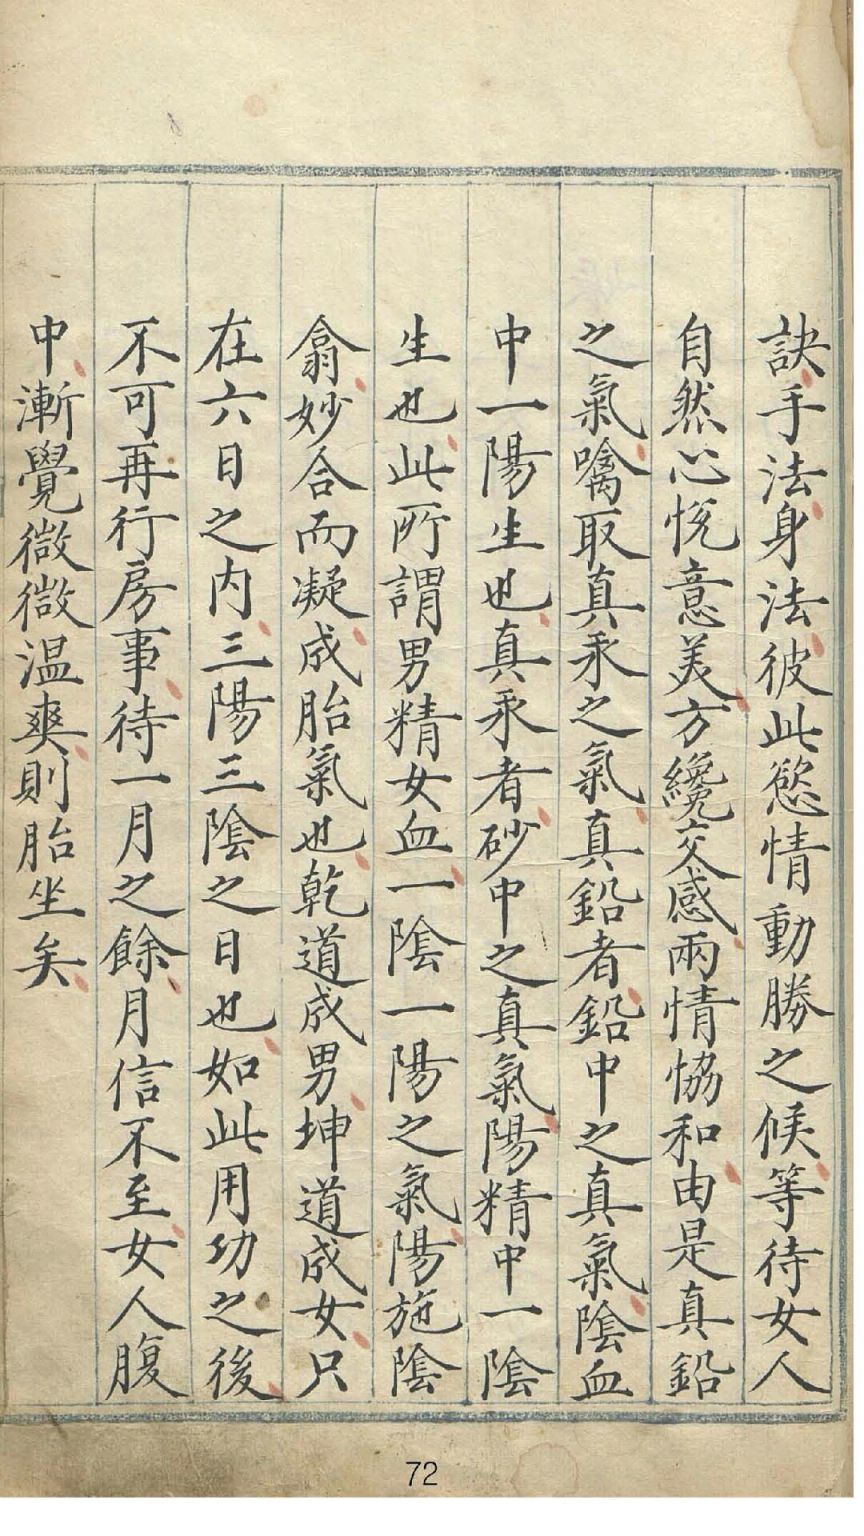 訣手法身法彼此慾情動勝之候等待女人
自然心悅意美方纔交感兩情協和由是真鉛
之氣噙取真汞之氣真鉛者鉛中之真氣陰血
中一陽生也真汞者砂中之真氣陽精中一陰
生也此所謂男精女血一陰一陽之氣陽施陰
翕妙合而凝成胎氣也乾道成男坤道成女只
在六日之内三陽三陰之日也如此用功之後
不可再行房事待一月之餘月信不至女人腹
中漸覺微微溫爽則胎坐矣
72